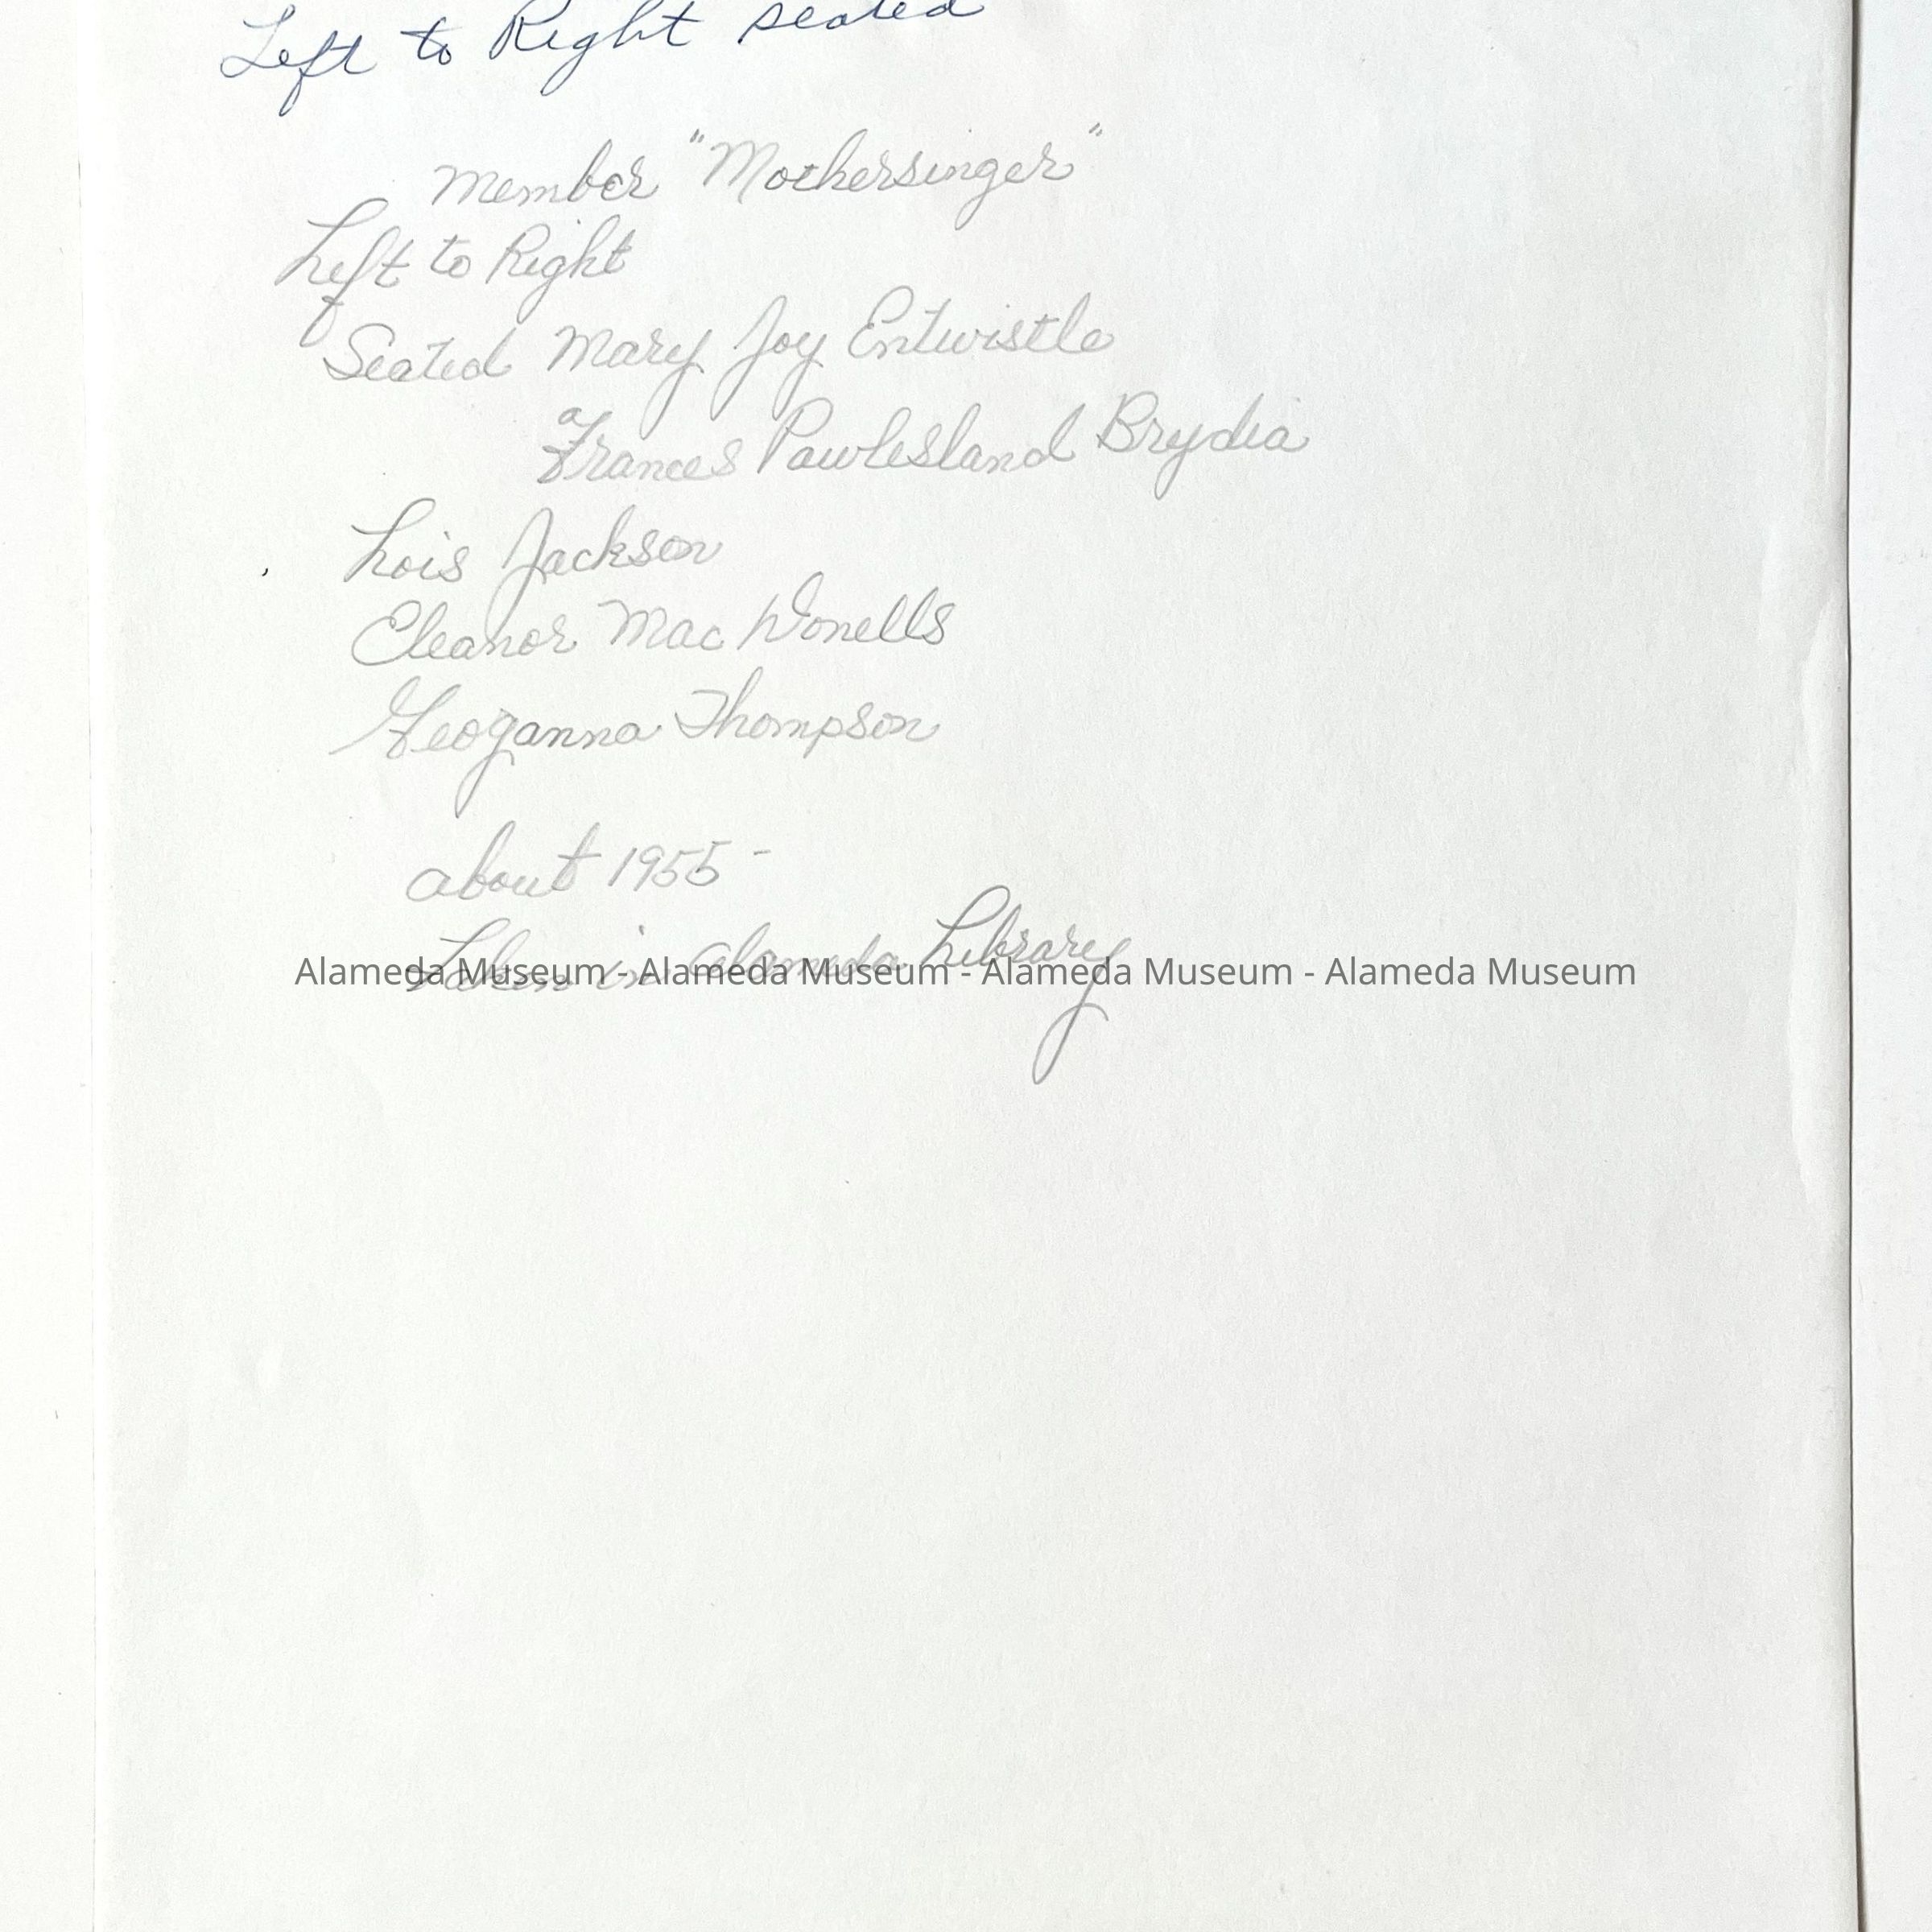 Left to Right seated
Member "Mothersinger"
Left to Right
Seated Mary Joy Entwistle
Frances Pawlesland Brydia
Lois Jackson
Eleanor Mac Donells
Geoganna Thompson
about 1955 -
Taken in Alameda Library
Alameda Museum - Alameda Museum - Alameda Museum - Alameda Museum